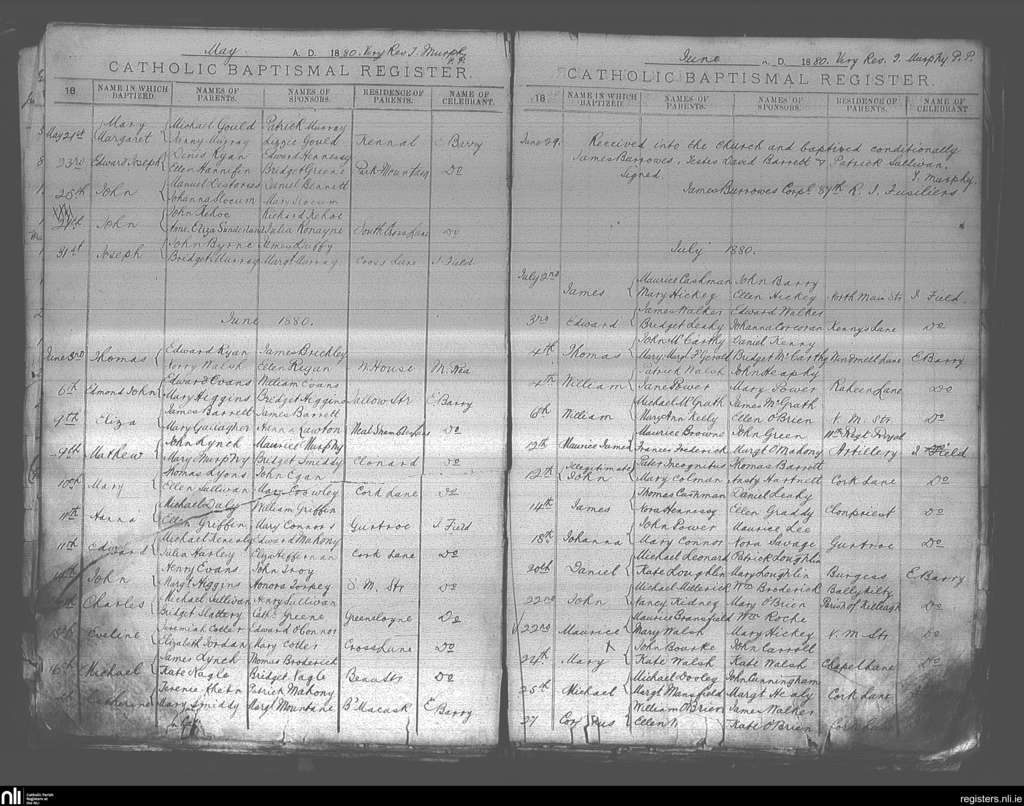 May A. D. 1880. Very Rev. J. Murphy P. P.
CATHOLIC BAPTISMAL REGISTER.
18 NAME IN WHICH BAPTIZED. NAMES OF PARENTS. NAMES OF SPONSORS. RESIDENCE OF PARENTS. NAME OF CELEBRANT.
May 21st Mary Margaret Michael Gould Patrick Murray
Murray Lizzie Gould Kennal Berry
23rd Edward Joseph Denis Ryan Edward Hennessy
Ellen Hannifin Bridget Greene Park Mountain Do
25th John Manuel Daniel Bennett
Johanna Slocum Mary Slocum
John John Kehoe Richard Kehoe
Eliza Sunderland Julia Ronayne South Cross Lane Do
31st Joseph John Byrne James Duffy
Bridget Murray Margt Murray Cross Lane J Field
June 1880.
June 3rd Thomas Edward Ryan James Brickley
Walsh Ellen Regan W. House M. Shea
6th Edmond John Edward Evans William Evans
Mary Higgins Bridget Higgins Sallow Str E. Barry
9th Eliza James Barrett James Barrett
Mary Gallagher Hanna Lawton Do
9th Mathew John Lynch Maurice Murphy
Mary Murphy Bridget Smiddy Clonard Do
10th Mary Thomas Lyons John Egan
Ellen Sullivan Mary Crowley Cork Lane Do
11th Hanna Michael Daly William Griffin
Ellen Griffin Mary Connors Gurtroe J Field
11th Edward Michael Edward Mahony
Julia Hurley Eliza Heffernan Cork Lane Do
John Henry Evans John Troy
Margt Higgins Honora Torpey S. M. Str Do
Charles Michael Sullivan Henry Sullivan
Bridget Slattery Cath Greene Greencloyne Do
Eveline Jeremiah Cotter Edward O'Connor
Elizabeth Jordan Mary Cotter Cross Lane Do
16th Michael James Lynch Thomas Broderick
Kate Nagle Bridget Nagle Beau Str Do
Catherine Terence Patrick Mahony
Mary Smiddy Margt Mountane E Barry
June A. D. 1880. Very Rev. J. Murphy P. P.
CATHOLIC BAPTISMAL REGISTER.
18 NAME IN WHICH BAPTIZED. NAMES OF PARENTS. NAMES OF SPONSORS. RESIDENCE OF PARENTS. NAME OF CELEBRANT
June 29. Received into the church and baptised conditionally
James Burrowes, Testes David Barrett & Patrick Sullivan.
Signed. J. Murphy.
James Burrowes Corpl 87th R. I. Fusiliers
July 1880.
July 2nd James Maurice Cashman John Barry
Mary Hickey Ellen Hickey North Main Str J. Field
3rd Edward James Walker Edward Walker
Bridget Leahy Johanna Corcoran Kennys Lane Do
4th Thomas John McCarthy Daniel Kenny
Mary Margt Bridget McCarthy E Barry
4th William Patrick Walsh John Heaphy
Jane Power Mary Power Raheen Lane Do
6th William Michael McGrath James McGrath
Mary Ann Kelly Ellen O'Brien N. M. Str. Do
12th Maurice James Maurice Browne John Green
Frances Frederick Margt O'Mahony Artillery J Field
12th Illegitimate John Pater Incognitus Thomas Barrett
Mary Colman Hartnett Cork Lane Do
14th James Thomas Cashman Daniel Leahy
Nora Hennessy Ellen Graddy Clonpriest Do
18th Johanna John Power Maurice Lee
Mary Connor Nora Savage Gurtroe Do
20th Daniel Michael Leonard Patrick Loughlin
Kate Loughlin Mary Loughlin Burgess E Barry
22nd John Michael Wm Broderick Ballykilty
Nancy Kidney Mary O'Brien Parish of Killeagh Do
22nd Maurice Maurice Bransfield Wm Roche
Mary Walsh Mary Hickey N. M Str Do
24th Mary John Bourke John Carroll
Kate Walsh Kate Walsh Chapel Lane Do
25th Michael Michael Dooley John Cunningham
Margt Mansfield Margt Healy Cork Lane
27 William O'Brien James Walker
Ellen Kate O'Brien Cork Lane
nli Catholic Parish Registers at the NLI
registers.nli.ie